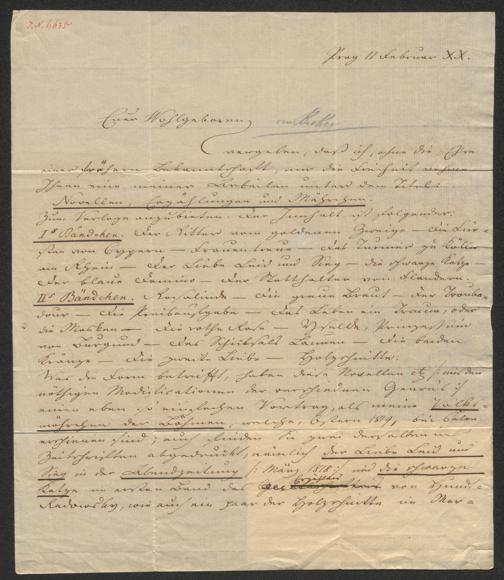 J.N. 6635
Prag 11 Februar XX.
Euer Wohlgeboren
vergeben, daß ich, ohne die Ehre
einer frühern Bekanntschaft, mir die Freiheit nehme
Ihnen eine meiner Arbeiten unter dem Titel:
Novellen, Erzählungen und Mährchen
zum Verlage anzubieten. Der Inhalt ist folgender:
Is Bändchen. Der Ritter vom goldenen Zweige — Die Für-
sten von Cypern — Frauentreue — Das Turnier zu Cölln
am Rhein — Der Liebe Leid und Sieg — Die schwarze Katze
Der blaue Domino — Der Statthalter von Flandern.
IIs Bändchen. Rosalinde — Die graue Braut — Der Trouba-
dour — Die Preisaufgabe — Das Leben ein Traum, oder
die Masken — Die rothe Rose — Yselde, Prinzessinn
von Burgund — Des Schicksals Launen — Die beiden
Kränze — Die zweite Liebe — Holzschnitte.
Was die Form betrifft, haben diese Novellen etc. /: mit den
nöthigen Modificationen der verschiednen Genres :/
einen eben so einfachen Vortrag, als meine Volks-
mährchen der Böhmen, welche, Ostern 1819, bei Calve
erschienen sind; auch finden sich zwei derselben in
Zeitschriften abgedruckt, nämlich der Liebe Leid und
Sieg in der Abendzeitung /: März 1818 :/ und die schwarze
Katze im ersten Band des Erzählers von Hundt-
Radowsky, wie auch ein paar der Holzschnitte im Mer-